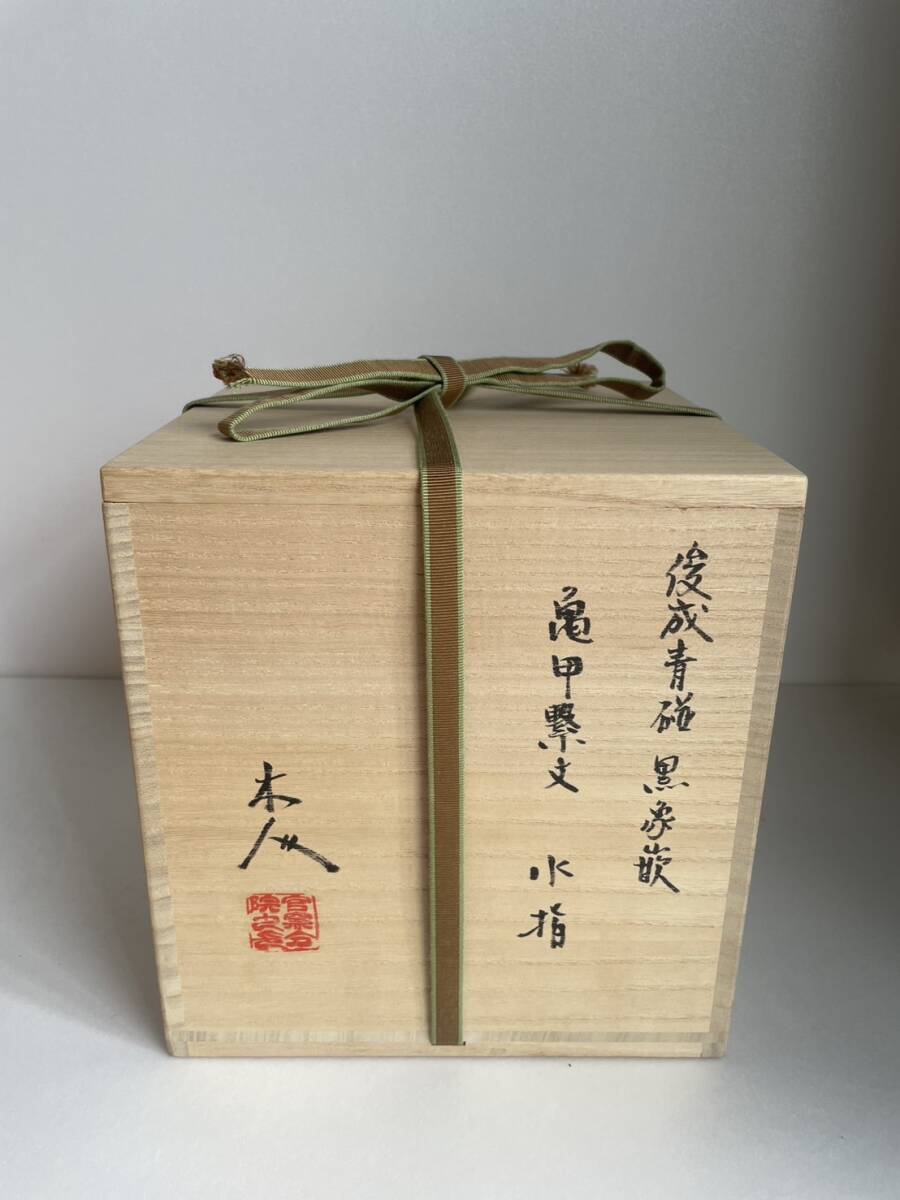 俊成青磁 黒象嵌
亀甲繋文 水指